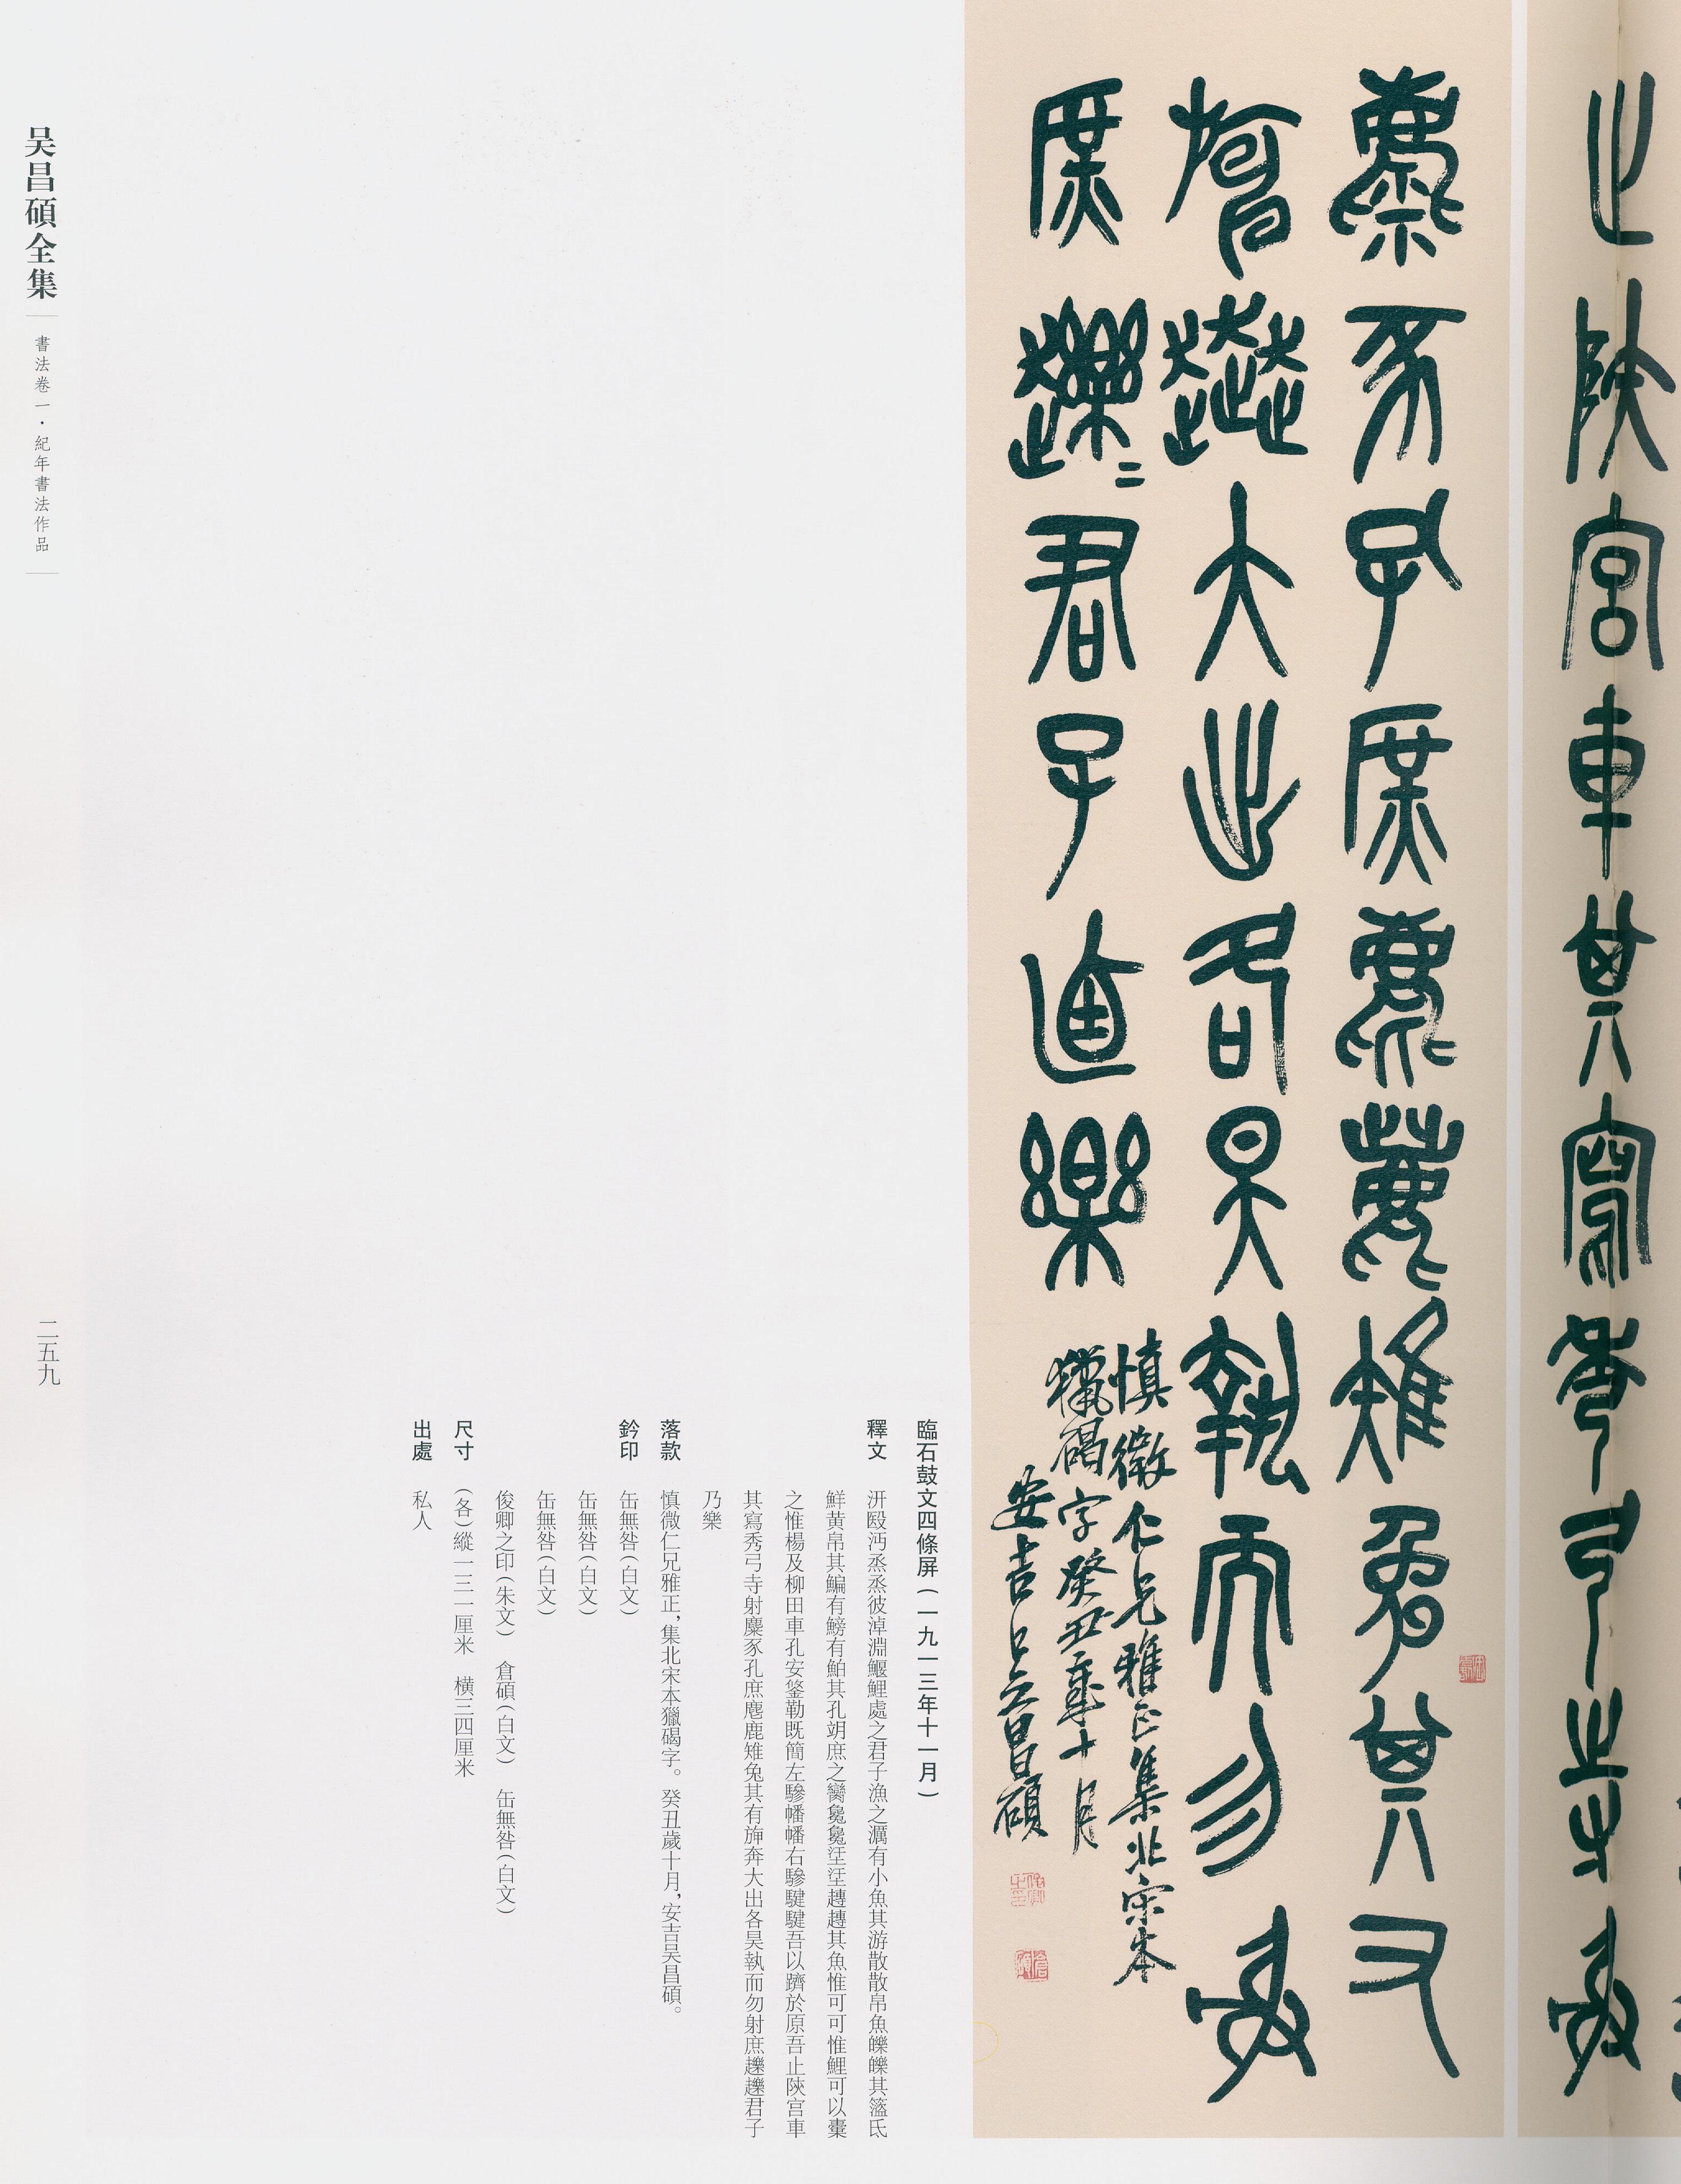 止陝宮車其寫秀弓寺射
麋豕孔庶麀鹿雉兔其又
大出各昊執而勿射
庶君子乃樂
慎微仁兄雅正集北宋本
獵碣字癸丑歲十月
安吉吳昌碩
臨石鼓文四條屏(一九一三年十一月)
釋文 汧殹沔烝烝彼淖淵鰋鯉處之君子漁之澫有小魚其游散散帛魚皪皪其氐
鮮黃帛其鯿有鰟有鮊其孔朔庶之臠毚毚其魚惟可可惟鯉可以橐
之惟楊及柳田車孔安鋚勒既簡左驂幡幡右驂騝騝吾以躋於原吾止陝宮車
其寫秀弓寺射麋豕孔庶麀鹿雉兔其有奔大出各昊執而勿射庶君子
乃樂
落款 慎微仁兄雅正,集北宋本獵碣字。癸丑歲十月,安吉吳昌碩。
鈐印 缶無咎(白文)
缶無咎(白文)
缶無咎(白文)
俊卿之印(朱文) 倉碩(白文) 缶無咎(白文)
尺寸 (各)縱一三一厘米 橫三四厘米
出處 私人
吴昌碩全集
書法卷一·紀年書法作品
二五九